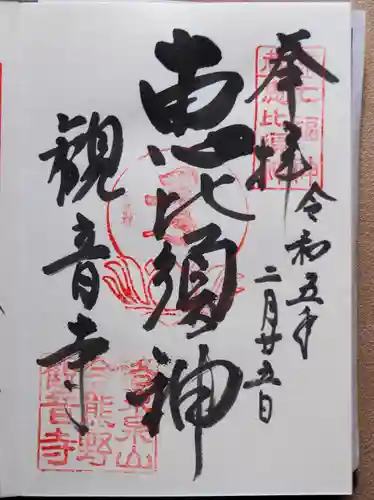 奉拝
令和五年
二月廿五日
恵比須神
観音寺
七福神
恵比須
今熊野
観音寺